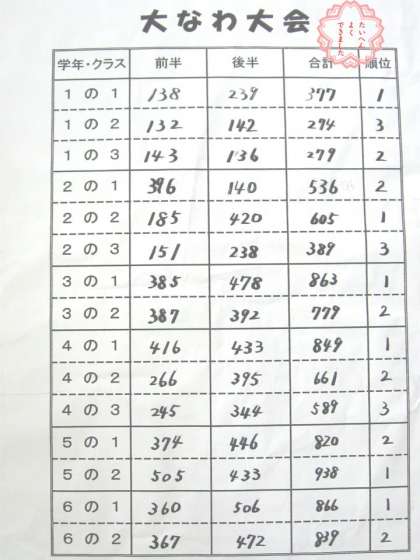 大なわ大会
たいへん
よく
できました
学年・クラス 前半 後半 合計 順位
1の1 138 239 377 1
1の2 132 142 274 3
1の3 143 136 279 2
2の1 396 140 536 2
2の2 185 420 605 1
2の3 151 238 389 3
3の1 385 478 863 1
3の2 387 392 779 2
4の1 416 433 849 1
4の2 266 395 661 2
4の3 245 344 589 3
5の1 374 446 820 2
5の2 505 433 938 1
6の1 360 506 866 1
6の2 367 472 839 2